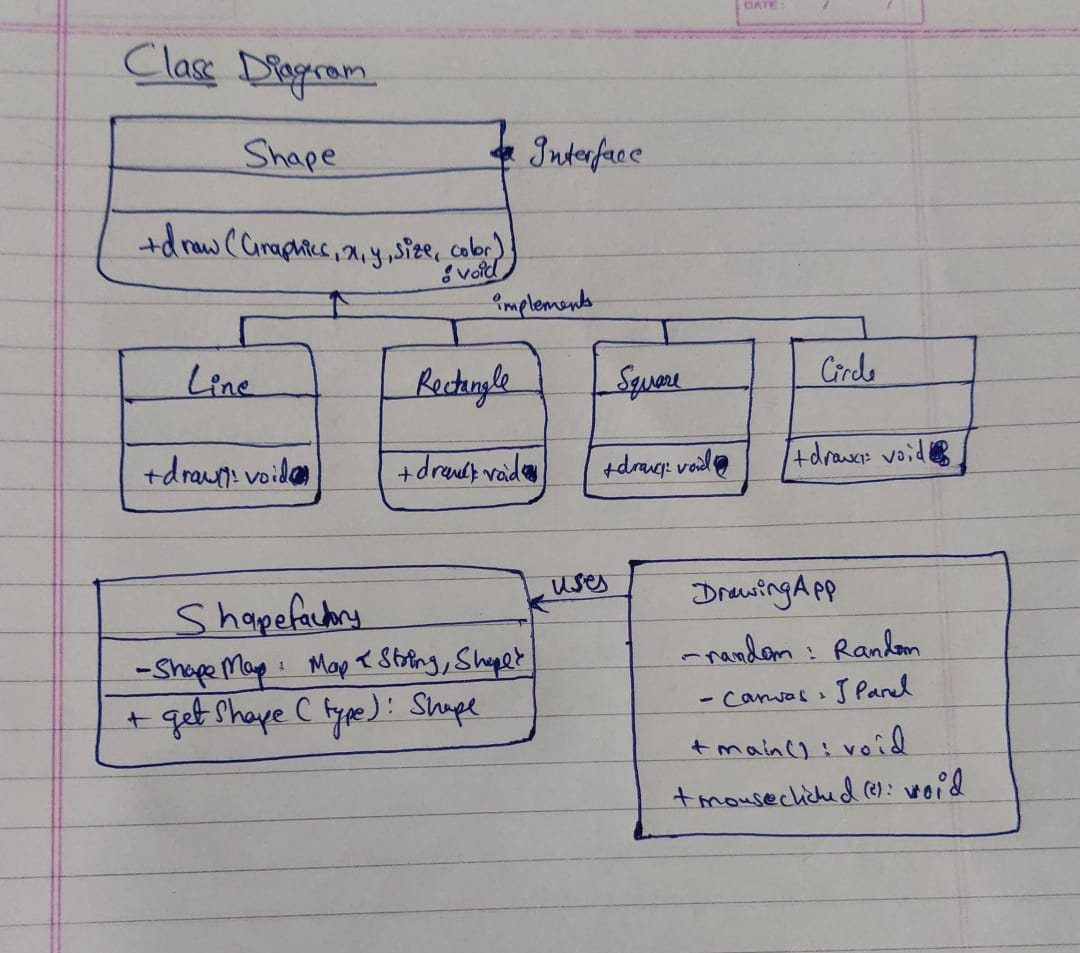 DATE: / /
Class Diagram
Shape
Interface
+draw(Graphics, x, y, size, color)
: void
implements
Line
+draw(): void
Rectangle
+draw(): void
Square
+draw(): void
Circle
+draw(): void
Shapefactory
-ShapeMap: Map<String, Shape>
+ getShape(type): Shape
uses
DrawingApp
-random: Random
- canvas: JPanel
+main(): void
+mouseclicked(e): void